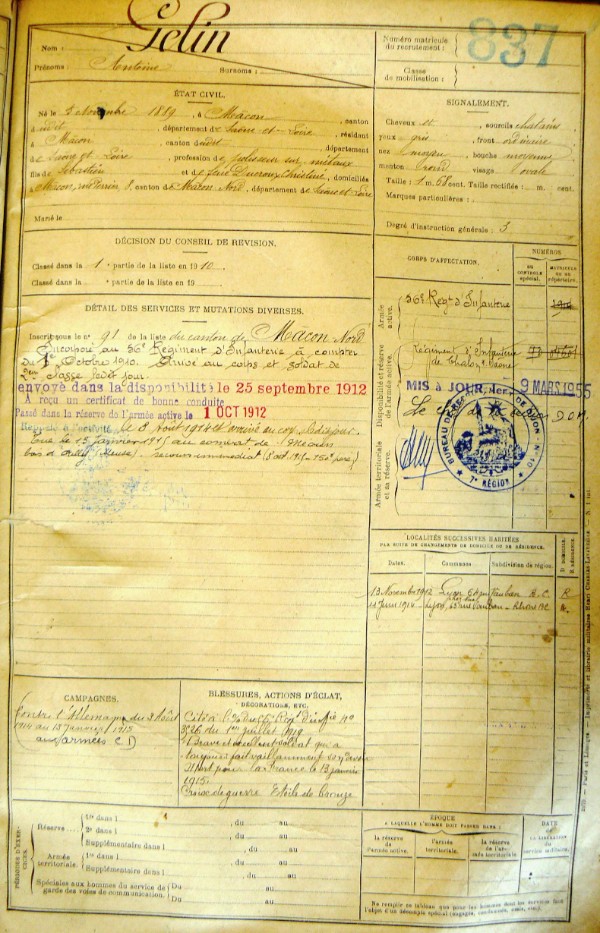 Gelin
Nom :
Prénoms : Antoine Surnoms :
Numéro matricule du recrutement : 837
Classe de mobilisation :
ÉTAT CIVIL.
Né le 3 novembre 1889, à Mâcon, canton
du dit, département de Saône-et-Loire, résidant
à Mâcon, canton du dit, département
de Saône et Loire, profession de polisseur sur métaux
fils de Sébastien et de Ducroux Christine, domiciliés
à Mâcon, canton de Mâcon Nord, département de Saône et Loire
Marié le
SIGNALEMENT.
Cheveux et sourcils châtains
yeux gris, front
nez moyen, bouche moyenne
menton rond visage ovale
Taille : 1 m. 68 cent. Taille rectifiée : m. cent.
Marques particulières :
Degré d'instruction générale : 3
DÉCISION DU CONSEIL DE REVISION.
Classé dans la 1e partie de la liste en 1910
Classé dans la partie de la liste en 19
DÉTAIL DES SERVICES ET MUTATIONS DIVERSES.
Inscrit sous le n° 91 de la liste du canton de Mâcon Nord
Incorporé au 56e Régiment d'Infanterie à compter
du 1er Octobre 1910. Arrivé au corps et soldat de
2e classe le dit jour.
envoyé dans la disponibilité le 25 septembre 1912
A reçu un certificat de bonne conduite
Passé dans la réserve de l'armée active le 1 OCT 1912
Rappelé à l'activité le 3 Août 1914 et arrivé au corps le dit jour.
Tué le 13 janvier 1915 au combat de
bois d'Ailly (Meuse). secours immédiat
CORPS D'AFFECTATION.
NUMÉROS
AU CONTROLE spécial.
MATRICULE AU répertoire.
Armée active.
56e Régt d'Infanterie
Disponibilité et réserve de l'armée active.
Régiment d'Infanterie
de Chalon s. Saône
MIS à JOUR, 9 MARS 1955
BUREAU DE DIJON
7e RÉGION
Armée territoriale et sa réserve.
LOCALITÉS SUCCESSIVES HABITÉES
PAR SUITE DE CHANGEMENTS DE DOMICILE OU DE RÉSIDENCE.
Dates. Communes. Subdivision de région. D domicile. R résidence.
13 Novembre 1912 Lyon R
Juin 1914 Lyon R
CAMPAGNES.
Contre l'Allemagne du 3 Août
1914 au 13 janvier 1915
(aux armées CD)
BLESSURES, ACTIONS D'ÉCLAT,
DÉCORATIONS, ETC.
Cité à l'ordre du Régt d'Inf n°
326 du 1er juillet 1919
Brave et excellent soldat qui a
toujours fait vaillamment son devoir
Mort pour la France le 13 janvier
1915.
Croix de guerre Etoile de bronze
PÉRIODES D'EXERCICES.
Réserve
1re dans l , du au
2e dans l , du au
Supplémentaire dans l , du au
Armée territoriale.
1re dans l , du au
Supplémentaire dans l , du au
Spéciales aux hommes du service de garde des voies de communication.
Du au
Du au
ÉPOQUE
A LAQUELLE L'HOMME DOIT PASSER DANS :
la réserve de l'armée active.
l'armée territoriale.
la réserve de l'armée territoriale.
DATE
DE LA LIBÉRATION du service militaire.